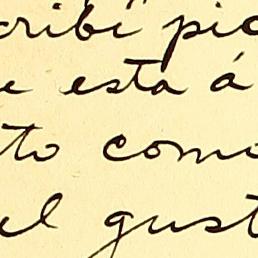 cribí pic
e esta á
to como
el gust